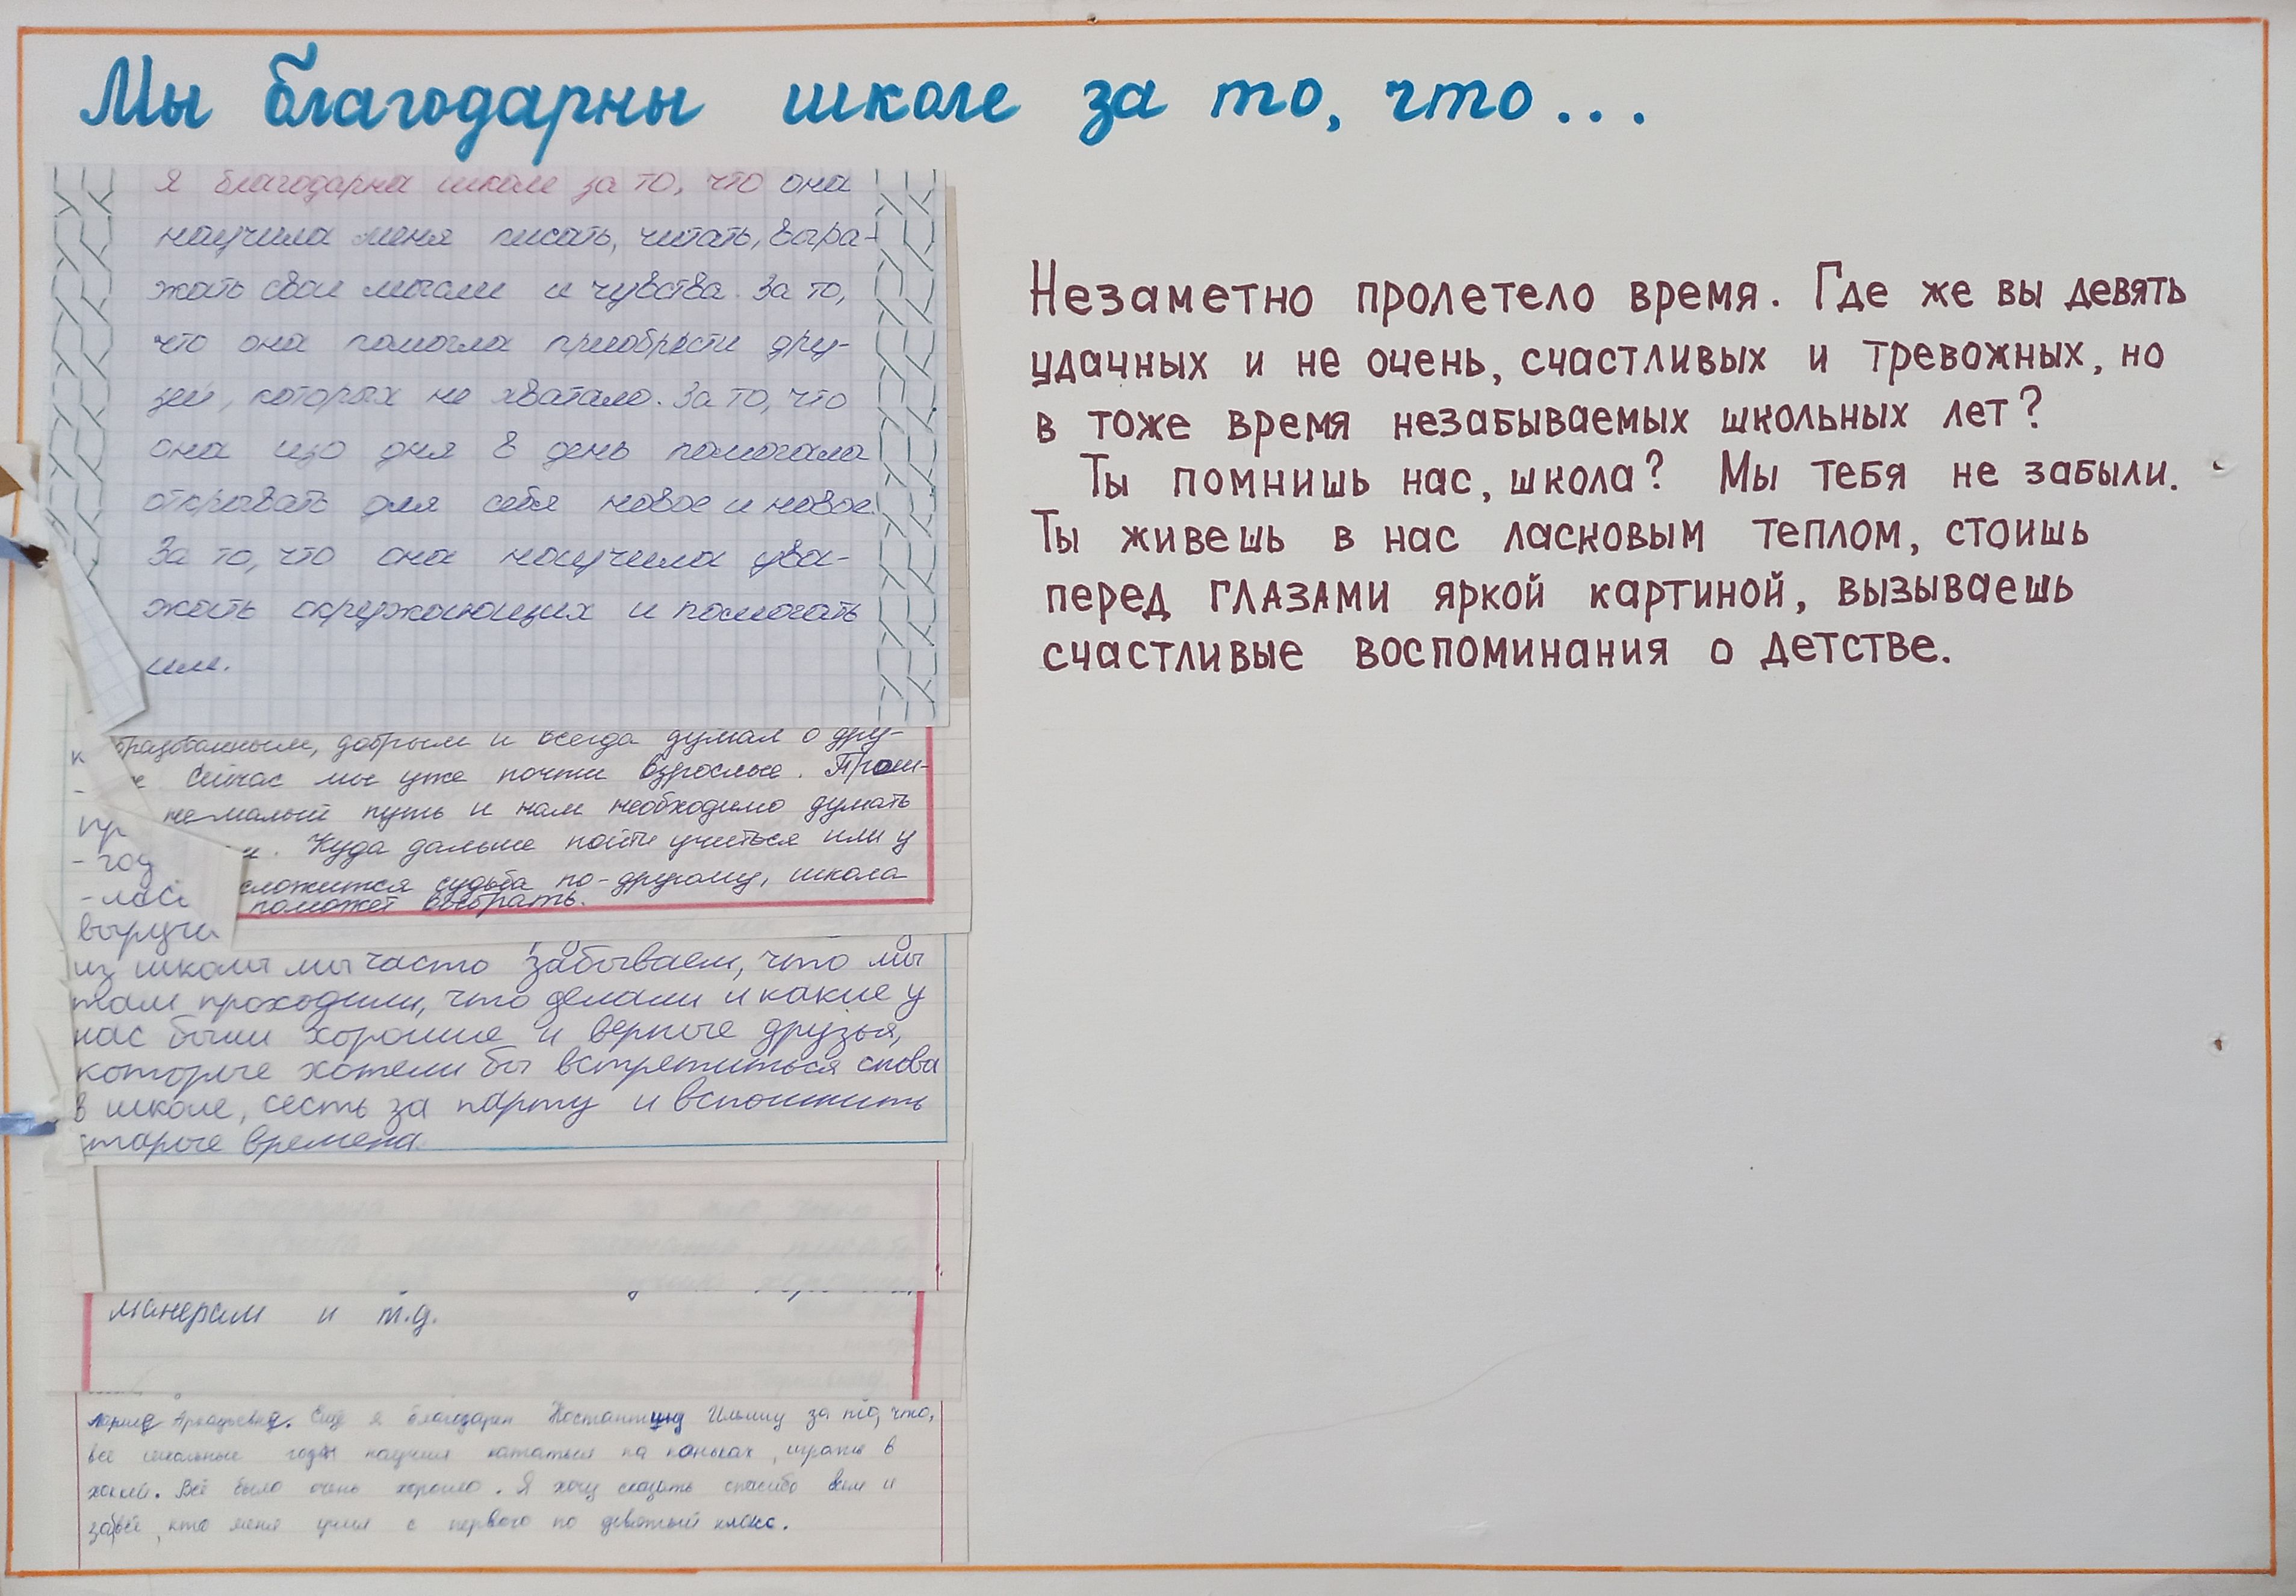 Мы благодарны школе за то, что...
Я благодарна школе за то, что она
научила меня писать, читать, выра-
жать свои мысли и чувства. За то,
что она помогла приобрести дру-
зей, которых не хватало. За то, что
она изо дня в день помогала
открывать для себя новое и новое.
За то, что она научила ува-
жать окружающих и помогать
им.
образованным, добрым и всегда думал о дру-
Сейчас мы уже почти взрослые. Прош-
немалый путь и нам необходимо думать
Куда дальше пойти учиться или у
сложится судьба по-другому, школа
поможет выбрать.
- год
из школы мы часто забываем, что мы
там проходили, что делали и какие у
нас были хорошие и верные друзья,
которые хотели бы встретиться снова
в школе, сесть за парту и вспомнить
старые времена.
манерам и т.д.
Ещё я благодарен Костантину Ильичу за то, что,
все школьные годы научил кататься на коньках, играть в
хоккей. Всё было очень хорошо. Я хочу сказать спасибо всем и
за всё, кто меня учил с первого по девятый класс.
Незаметно пролетело время. Где же вы девять
удачных и не очень, счастливых и тревожных, но
в тоже время незабываемых школьных лет?
Ты помнишь нас, школа? Мы тебя не забыли.
Ты живешь в нас ласковым теплом, стоишь
перед глазами яркой картиной, вызываешь
счастливые воспоминания о детстве.